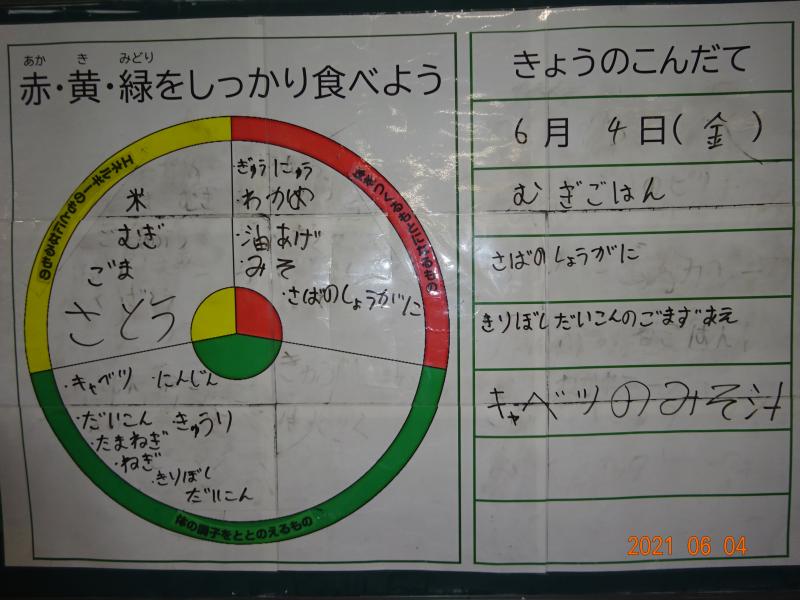 あか き みどり
赤・黄・緑をしっかり食べよう
エネルギーのもとになるもの
米
むぎ
ごま
さとう
体をつくるもとになるもの
・ぎゅうにゅう
・わかめ
・油あげ
・みそ
・さばのしょうがに
・キャベツ ・にんじん
・だいこん ・きゅうり
・たまねぎ
・ねぎ
・きりぼし
だいこん
体の調子をととのえるもの
きょうのこんだて
6月 4日(金)
むぎごはん
さばのしょうがに
きりぼしだいこんのごまずあえ
キャベツのみそ汁
2021 06 04